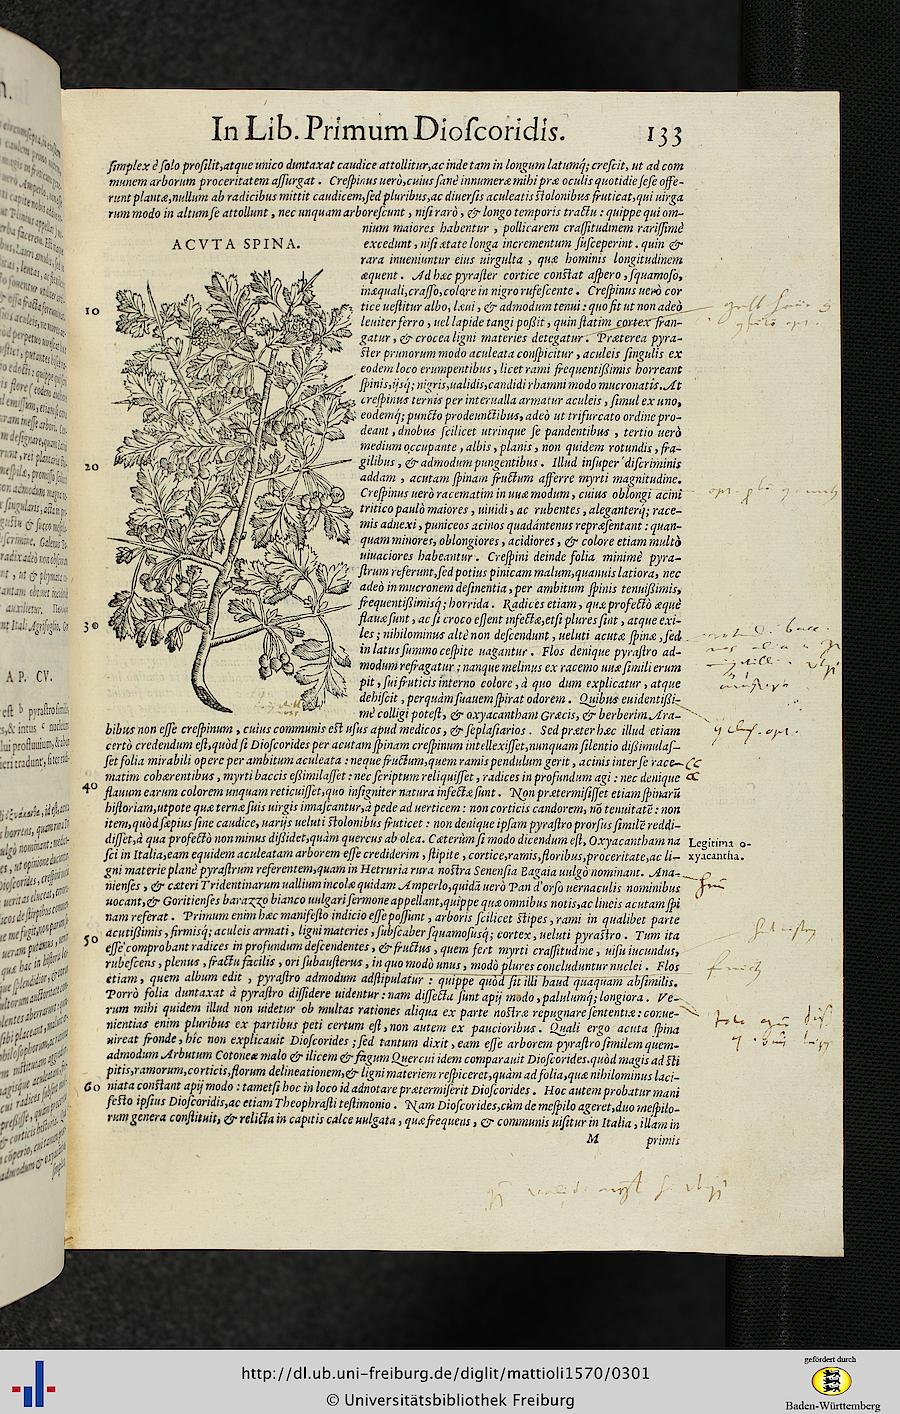 In Lib. Primum Dioſcoridis. 133
ſimplex è ſolo proſilit, atque unico duntaxat caudice attollitur, ac inde tam in longum latumq́; creſcit, ut ad com
munem arborum proceritatem aſſurgat. Creſpinus uerò, cuius ſanè innumeræ mihi præ oculis quotidie ſeſe offe-
runt plantæ, nullum ab radicibus mittit caudicem, ſed pluribus, ac diuerſis aculeatis ſtolonibus fruticat, qui uirga
rum modo in altum ſe attollunt, nec unquam arboreſcunt, niſi rarò, & longo temporis tractu: quippe qui om-
nium maiores habentur, pollicarem craſſitudinem rariſſimè
ACVTA SPINA.
excedunt, niſi ætate longa incrementum ſuſceperint. quin &
rara inueniuntur eius uirgulta, quæ hominis longitudinem
æquent. Ad hæc pyraſter cortice conſtat aſpero, ſquamoſo,
inæquali, craſſo, colore in nigro rufeſcente. Creſpinus uerò cor
10
tice ueſtitur albo, læui, & admodum tenui: quo fit ut non adeò
leuiter ferro, uel lapide tangi poßit, quin ſtatim cortex fran-
gatur, & crocea ligni materies detegatur. Præterea pyra-
ſter prunorum modo aculeata conſpicitur, aculeis ſingulis ex
eodem loco erumpentibus, licet rami frequentißimis horreant
ſpinis, ijsq́; nigris, ualidis, candidi rhamni modo mucronatis. At
creſpinus ternis per interualla armatur aculeis, ſimul ex uno,
eodemq́; puncto prodeunctibus, adeò ut trifurcato ordine pro-
deant, duobus ſcilicet utrinque ſe pandentibus, tertio uerò
medium occupante, albis, planis, non quidem rotundis, fra-
20
gilibus, & admodum pungentibus. Illud inſuper diſcriminis
addam, acutam ſpinam fructum afferre myrti magnitudine.
Creſpinus uerò racematim in uuæ modum, cuius oblongi acini
tritico paulò maiores, uiuidi, ac rubentes, aleganterq́; race-
mis adnexi, puniceos acinos quadántenus repræſentant: quan-
quam minores, oblongiores, acidiores, & colore etiam multò
uiuaciores habeantur. Creſpini deinde folia minimè pyra-
ſtrum referunt, ſed potius pinicam malum, quanuis latiora, nec
adeò in mucronem deſinentia, per ambitum ſpinis tenuißimis,
frequentißimisq́; horrida. Radices etiam, quæ profectò æquè
flauæ ſunt, ac ſi croco eſſent infectæ, etſi plures ſint, atque exi-
30
les; nihilominus altè non deſcendunt, ueluti acutæ ſpinæ, ſed
in latus ſummo ceſpite uagantur. Flos denique pyraſtro ad-
modum refragatur: nanque melinus ex racemo uuæ ſimili erum
pit, ſui fruticis interno colore, à quo dum explicatur, atque
dehiſcit, perquàm ſuauem ſpirat odorem. Quibus euidentißi-
mè colligi poteſt, & oxyacantham Græcis, & berberim Ara-
bibus non eſſe creſpinum, cuius communis eſt uſus apud medicos, & ſeplaſiarios. Sed præter hæc illud etiam
certò credendum eſt, quòd ſi Dioſcorides per acutam ſpinam creſpinum intellexiſſet, nunquam ſilentio dißimulaſ-
ſet folia mirabili opere per ambitum aculeata: neque fructum, quem ramis pendulum gerit, acinis inter ſe race-
matim cohærentibus, myrti baccis eßimilaſſet: nec ſcriptum reliquiſſet, radices in profundum agi: nec denique
40
flauum earum colorem unquam reticuiſſet, quo inſigniter natura infectæ ſunt. Non prætermiſiſſet etiam ſpinarū
hiſtoriam, utpote quæ ternæ ſuis uirgis innaſcantur, à pede ad uerticem: non corticis candorem, nō tenuitatē: non
item, quòd ſæpius ſine caudice, uarijs ueluti ſtolonibus fruticet: non denique ipſam pyraſtro prorſus ſimilē reddi-
diſſet, à qua profectò non minus dißidet, quàm quercus ab olea. Cæterùm ſi modo dicendum eſt, Oxyacantham na
Legitima o-
xyacantha.
ſci in Italia, eam equidem aculeatam arborem eſſe crediderim, ſtipite, cortice, ramis, floribus, proceritate, ac li-
gni materie planè pyraſtrum referentem, quam in Hetruria rura noſtra Senenſia Bagaia uulgò nominant. Ana-
nienſes, & cæteri Tridentinarum uallium incolæ quidam Amperlo, quidā uerò Pan d'orſo uernaculis nominibus
uocant, & Goritienſes barazzo bianco uulgari ſermone appellant, quippe quæ omnibus notis, ac lineis acutam ſpi
nam referat. Primum enim hæc manifeſto indicio eſſe poſſunt, arboris ſcilicet ſtipes, rami in qualibet parte
acutißimis, firmisq́; aculeis armati, ligni materies, ſubſcaber ſquamoſusq́; cortex, ueluti pyraſtro. Tum ita
50
eſſe comprobant radices in profundum deſcendentes, & fructus, quem fert myrti craſſitudine, uiſu iucundus,
rubeſcens, plenus, fractu facilis, ori ſubauſterus, in quo modò unus, modò plures concluduntur nuclei. Flos
etiam, quem album edit, pyraſtro admodum adſtipulatur: quippe quòd ſit illi haud quaquam abſimilis.
Porrò folia duntaxat à pyraſtro diſſidere uidentur: nam diſſecta ſunt apij modo, palulumq́; longiora. Ve-
rum mihi quidem illud non uidetur ob multas rationes aliqua ex parte noſtræ repugnare ſententiæ: conue-
nientias enim pluribus ex partibus peti certum eſt, non autem ex paucioribus. Quali ergo acuta ſpina
uireat fronde, hic non explicauit Dioſcorides; ſed tantum dixit, eam eſſe arborem pyraſtro ſimilem quem-
admodum Arbutum Cotoneæ malo & ilicem & fagum Quercui idem comparauit Dioſcorides. quòd magis ad ſti
pitis, ramorum, corticis, florum delineationem, & ligni materiem reſpiceret, quàm ad folia, quæ nihilominus laci-
60
niata conſtant apij modo: tametſi hoc in loco id adnotare prætermiſerit Dioſcorides. Hoc autem probatur mani
feſto ipſius Dioſcoridis, ac etiam Theophraſti teſtimonio. Nam Dioſcorides, cùm de meſpilo ageret, duo meſpilo-
rum genera conſtituit, & relicta in caputis calce uulgata, quæ frequens, & communis uiſitur in Italia, illam in
M primis
http://dl.ub.uni-freiburg.de/diglit/mattioli1570/0301
© Universitätsbibliothek Freiburg
gefördert durch
Baden-Württemberg